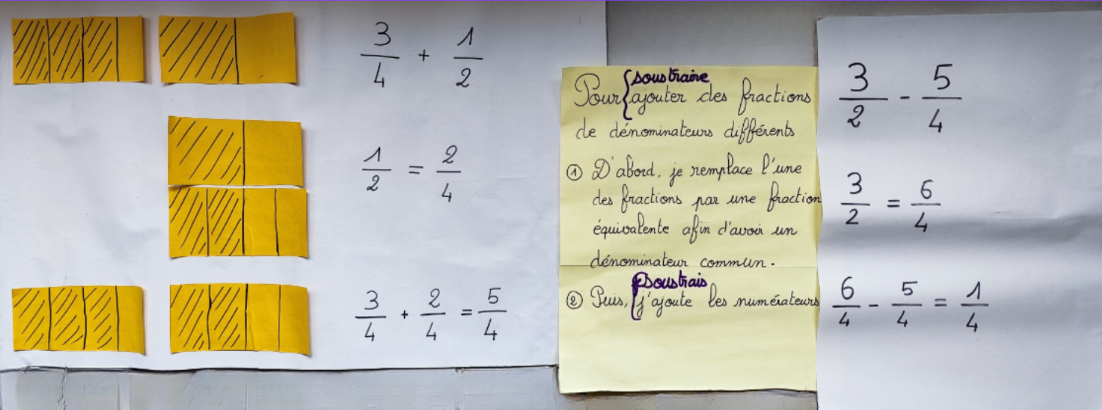 3/4 + 1/2
1/2 = 2/4
3/4 + 2/4 = 5/4
soustraire
Pour { ajouter des fractions
de dénominateurs différents
① D'abord, je remplace l'une
des fractions par une fraction
équivalente afin d'avoir un
dénominateur commun.
soustrais
② Puis, { j'ajoute les numérateurs
3/2 - 5/4
3/2 = 6/4
6/4 - 5/4 = 1/4